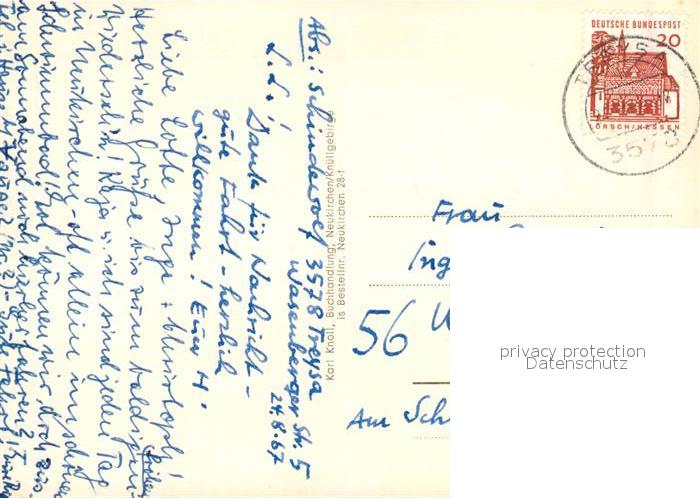 DEUTSCHE BUNDESPOST
20
LORSCH/HESSEN
TREYSA
3578
Abs.: Schinderolf 3578 Treysa
Wasenberger Str. 5
24.8.67
L. L.!
Dank für Nachricht -
gute Fahrt - herzlich
willkommen! Eure H.
Liebe Lotte, Inge + Christoph!
Herzliche Grüße bis zum baldigen
Wiedersehen! Kaja u. ich sind jeden Tag
in Neukirchen - oft allein im schönen
Schwimmbad! Evtl. können wir doch
am Sonnabend noch hierher fahren?
Karl Knoll, Buchhandlung, Neukirchen/Knüllgebirge
is Bestellnr. Neukirchen 28-1
Frau
Ing
56 W
Am Sch
privacy protection
Datenschutz